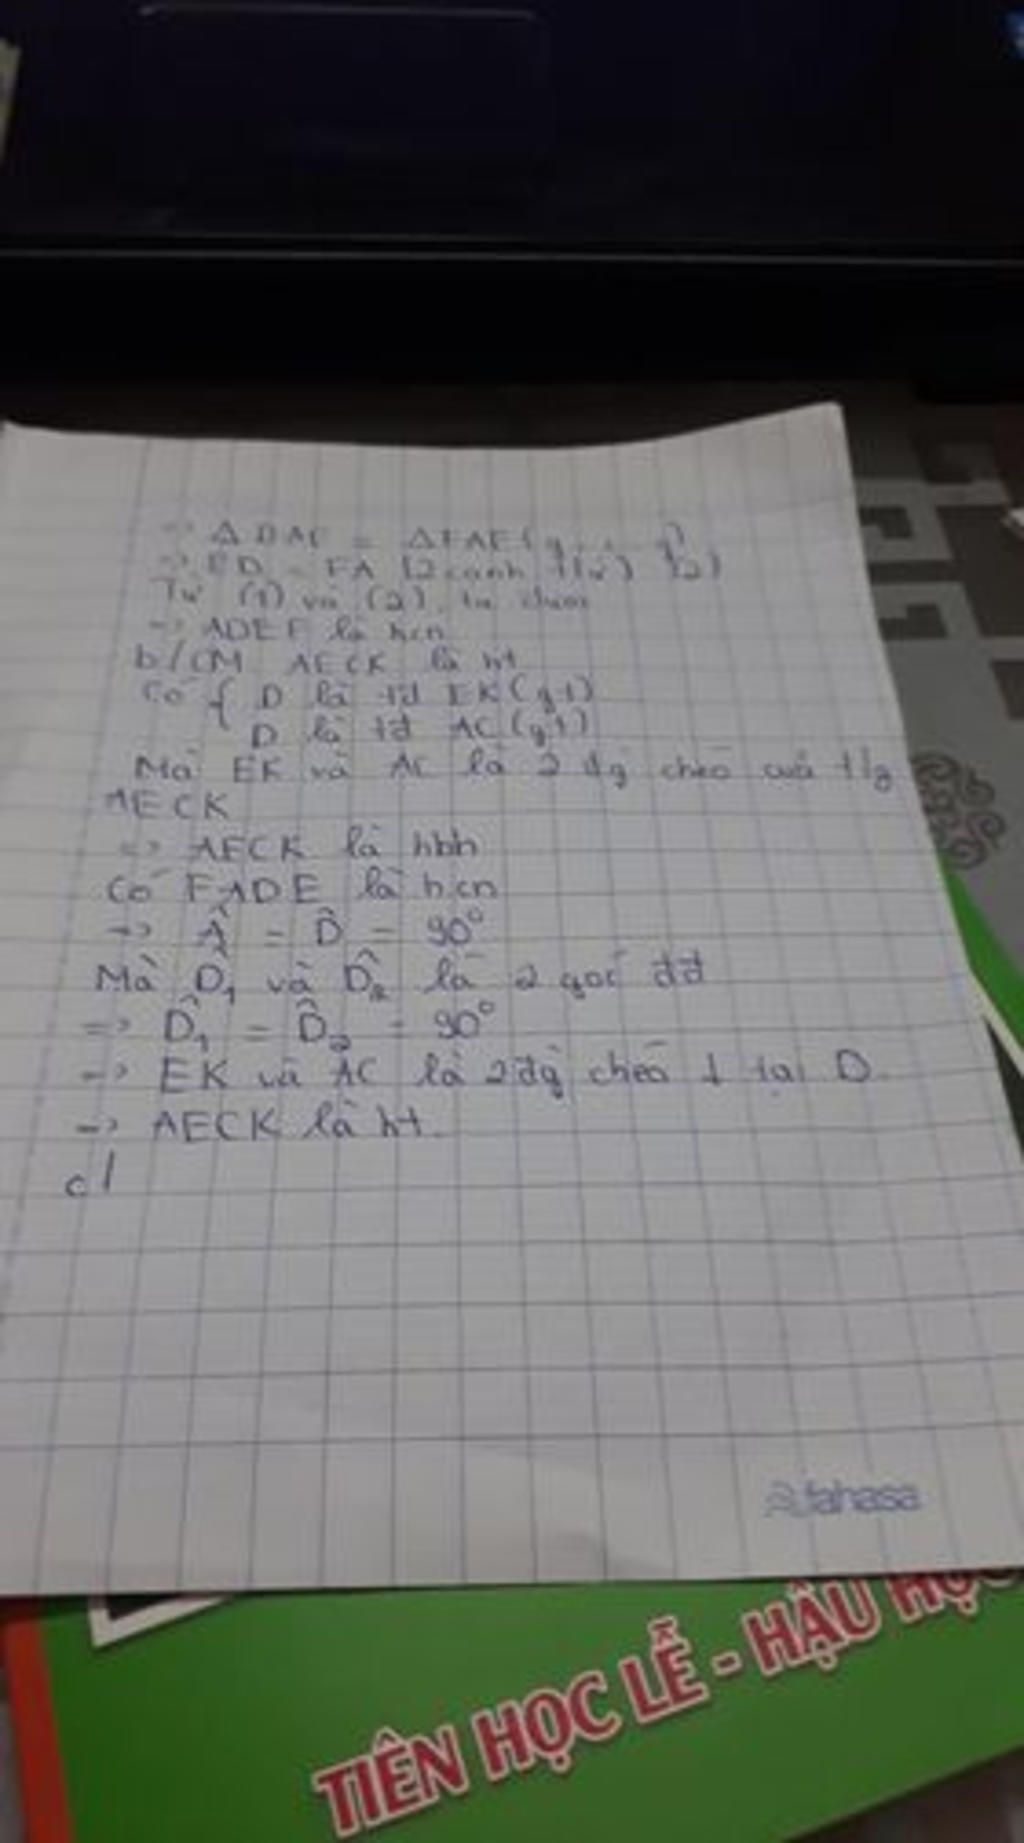 => Δ DAE = ΔFAE (g
=> ED = FA (2 cạnh t/ư) (2)
Từ (1) và (2), ta được
=> ADEF là hcn
b/ CM AECK là ht
Có { D là tđ EK (gt)
D là tđ AC (gt)
Mà EK và AC là 2 đg chéo của t/g
AECK
=> AECK là hbh
Có FADE là hcn
=> Â = D̂ = 90°
Mà D̂₁ và D̂₂ là 2 góc đđ
=> D̂₁ = D̂₂ = 90°
=> EK và AC là 2 đg chéo ⊥ tại D
=> AECK là ht.
c/
fahasa
TIÊN HỌC LỄ - HẬU HỌC